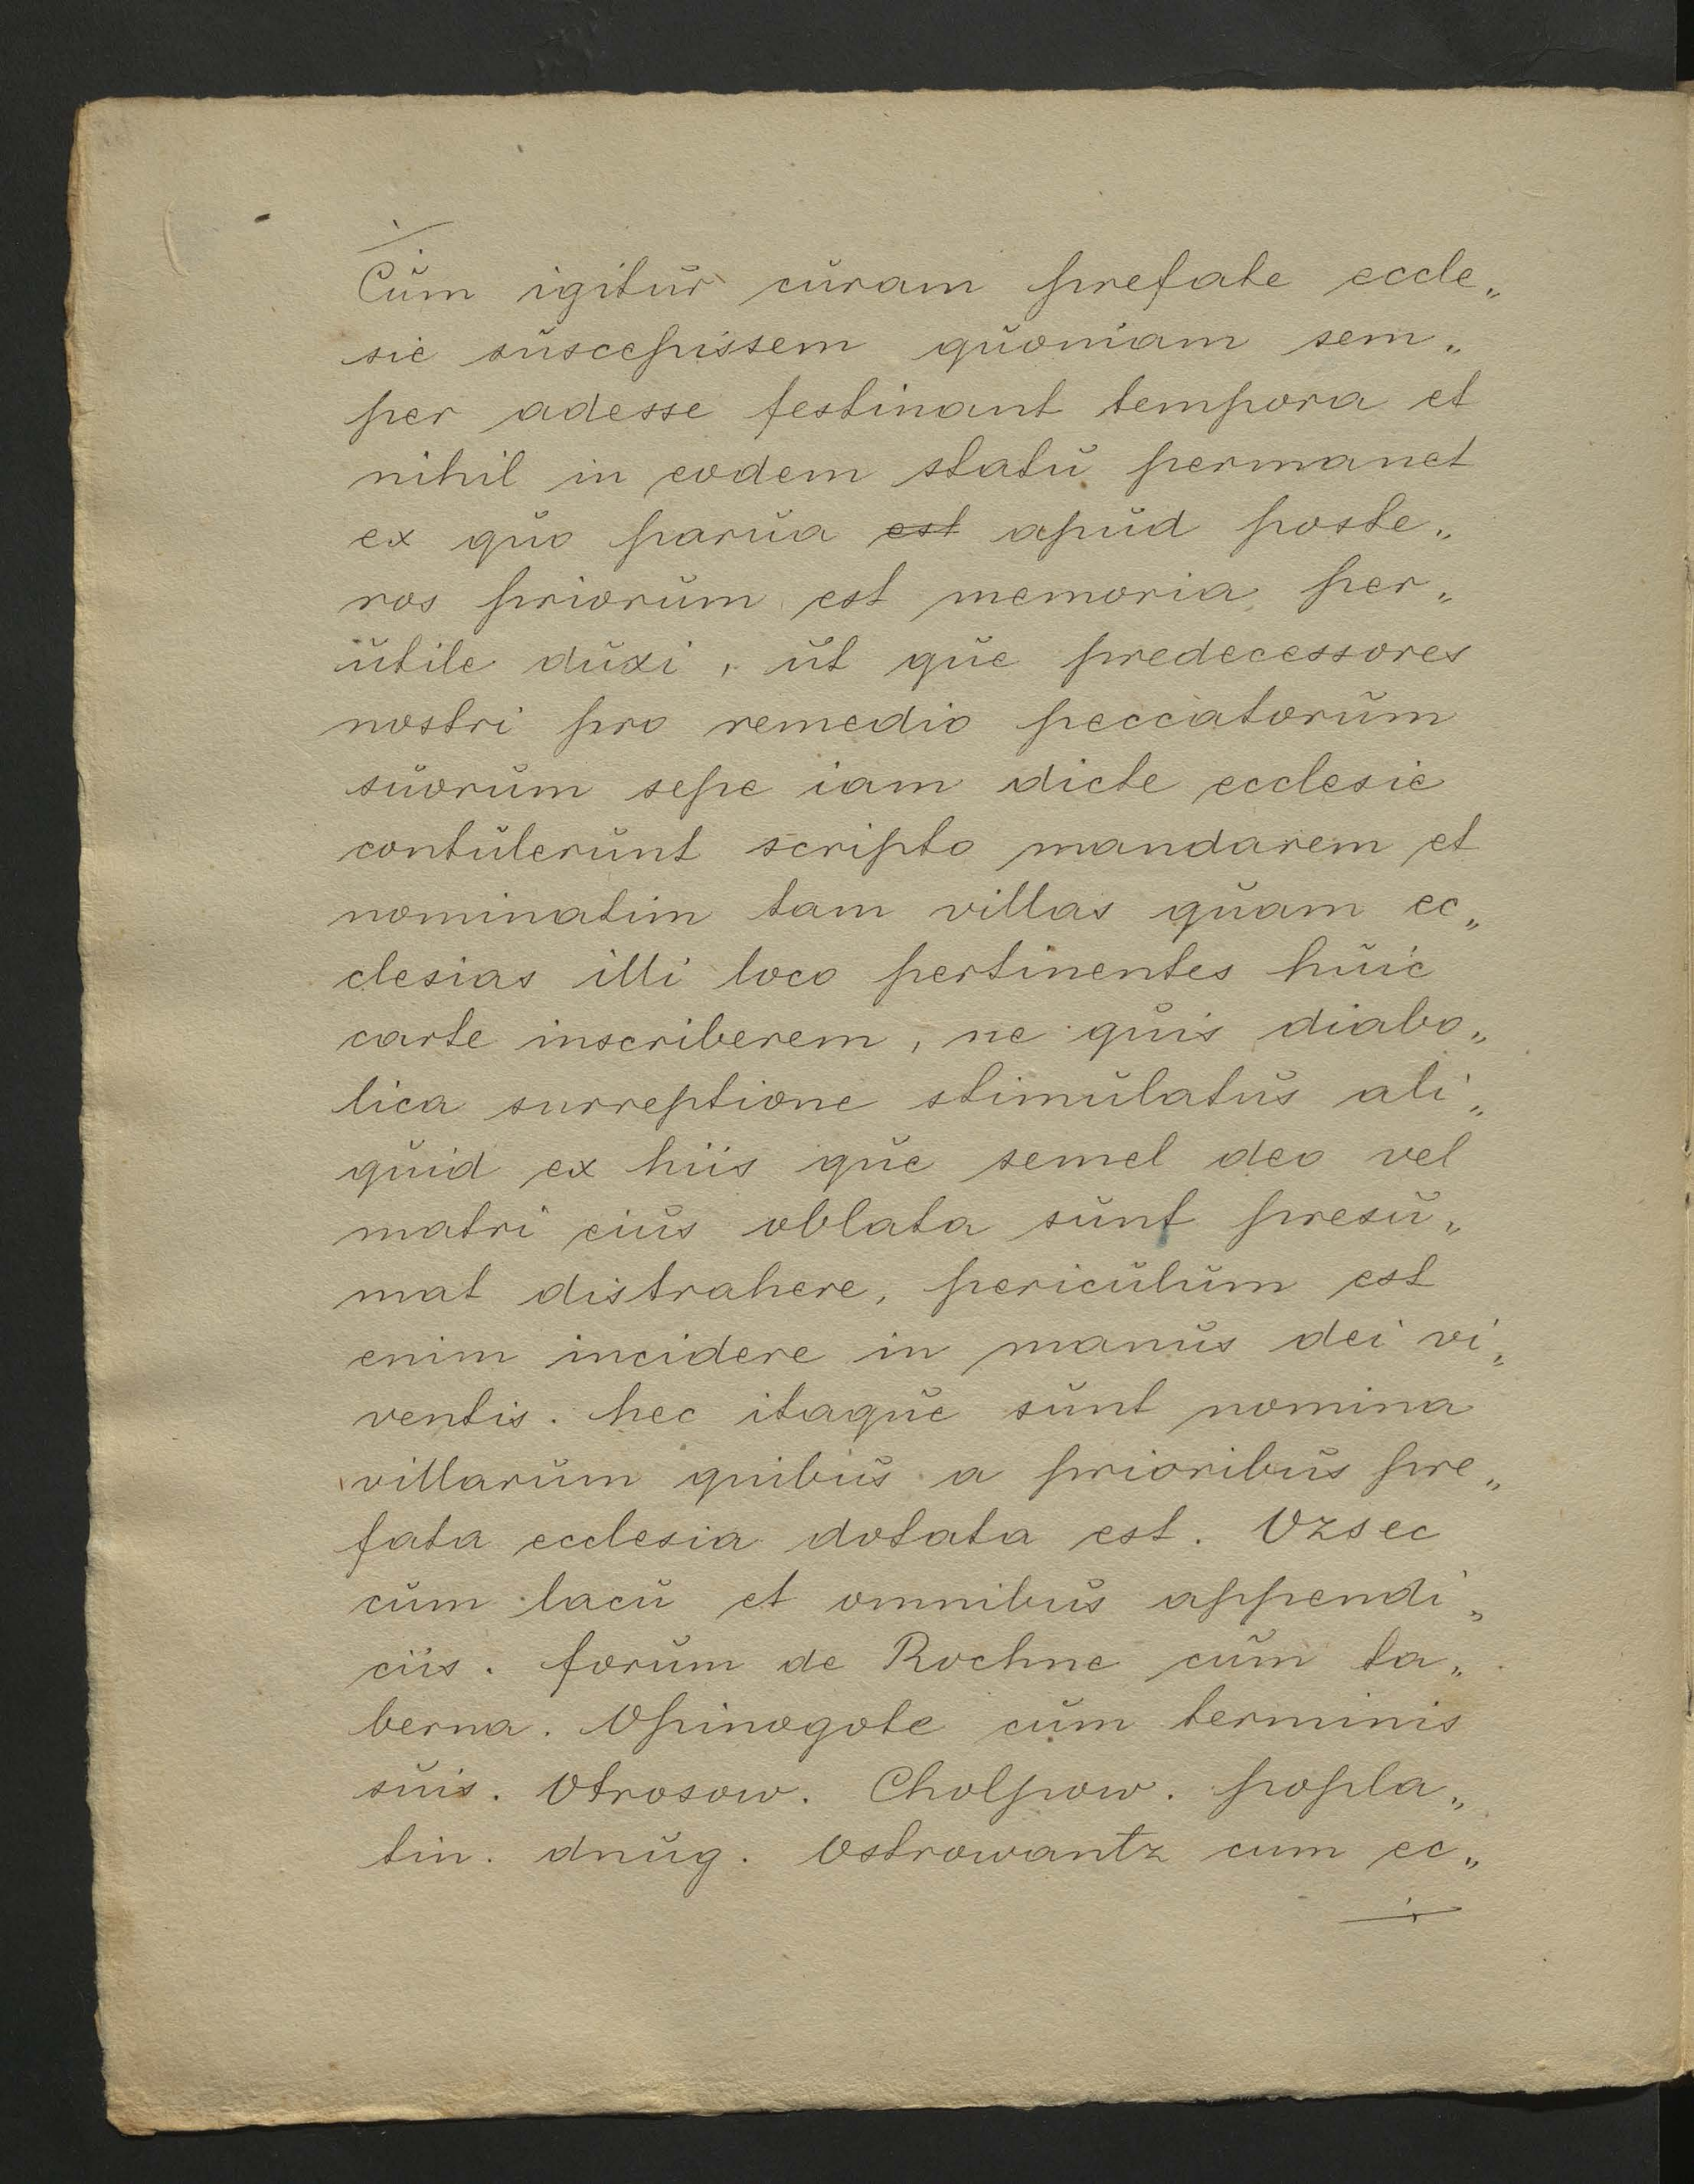 Cum igitur curam prefate eccle„
sie suscepissem quoniam sem„
per adesse festinant tempora et
nihil in eodem statu permanet
ex quo parua est apud poste„
ros priorum est memoria per„
utile duxi, ut que predecessores
nostri pro remedio peccatorum
suorum sepe iam dicte ecclesie
contulerunt scripto mandarem et
nominatim tam villas quam ec„
clesias illi loco pertinentes huic
carte inscriberem, ne quis diabo„
lica surreptione stimulatus ali„
quid ex hiis que semel deo vel
matri eius oblata sunt presu„
mat distrahere, periculum est
enim incidere in manus dei vi„
ventis. hec itaque sunt nomina
villarum quibus a prioribus pre„
fata ecclesia dotata est. Vzsec
cum lacu et omnibus appendi„
ciis. forum de Rochne cum ta„
berna. Vpinogote cum terminis
suis. Otrosow. Cholpow. popla„
tin. dnug. Ostrowantz cum ec„